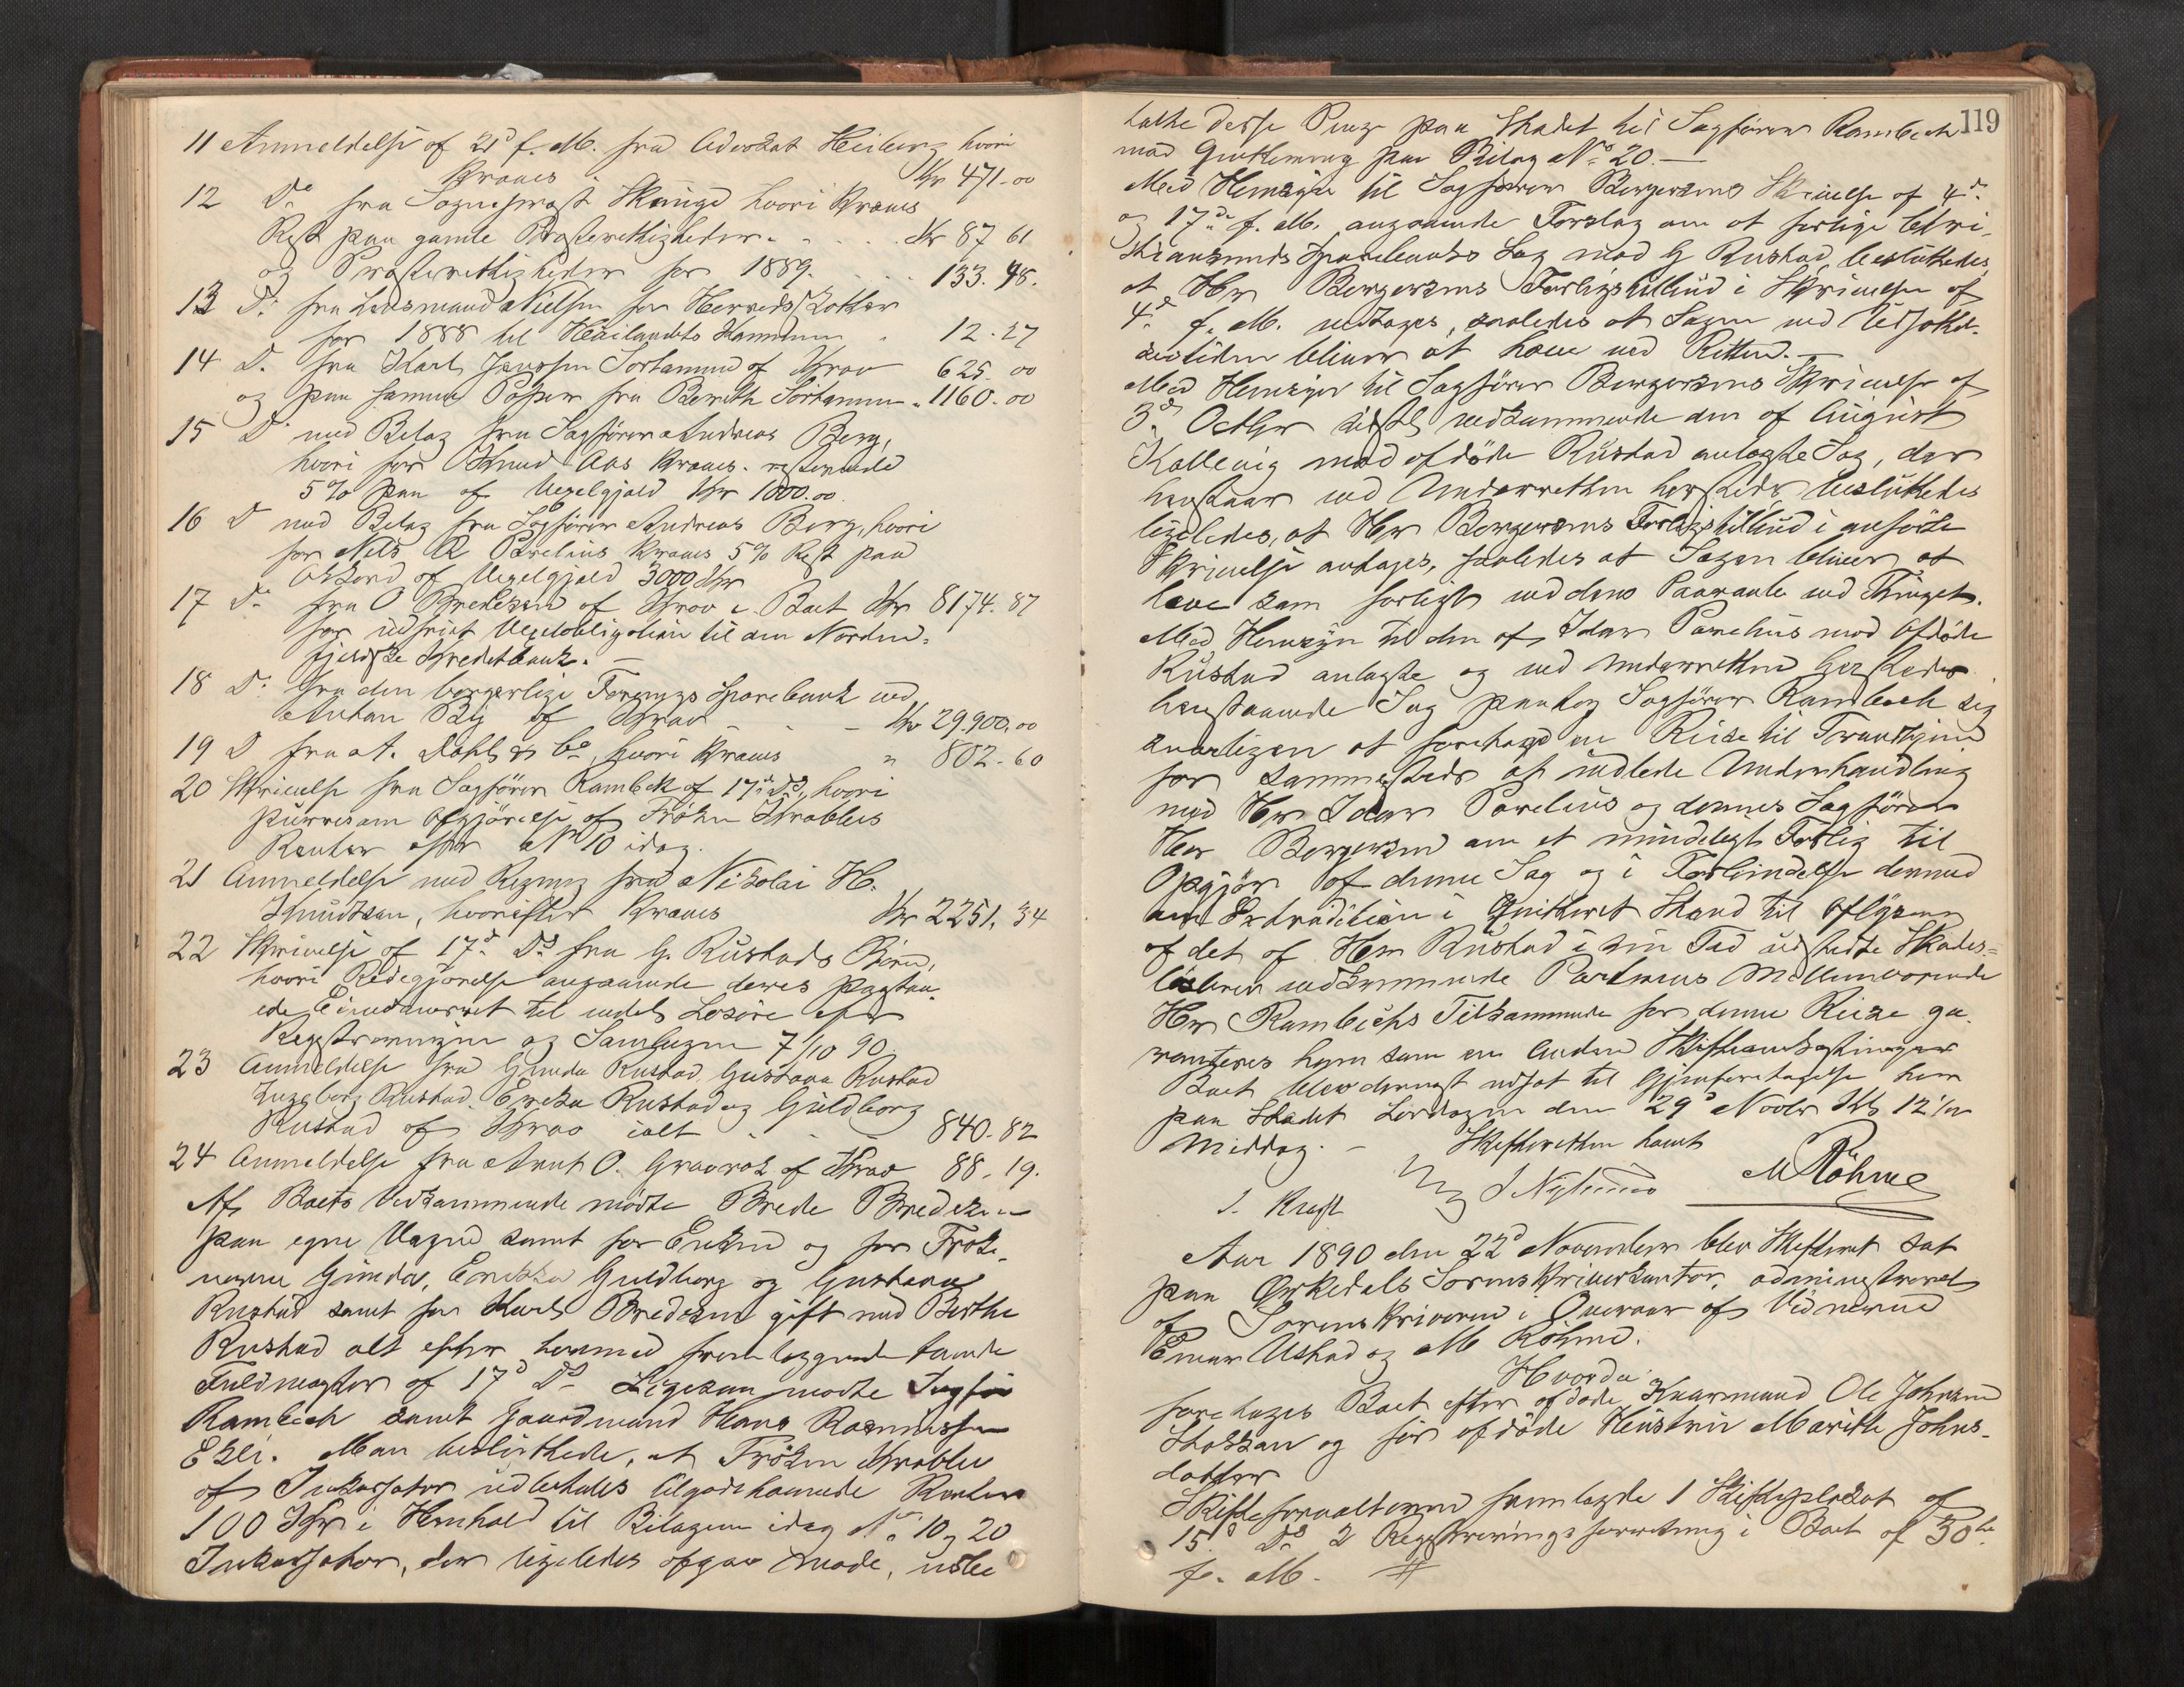 11 Anmeldelse af 21d f. M. fra Advokat Heiberg hvori
kræves Kr 471-00
12 Do fra Sogneprest Skeinge hvori kræves
Rest paa gamle Presterettigheder Kr 87 61
og Presterettigheder for 1889. 133.48.
13 Do fra Lensmand Nielsen for Herredsskatter
for 1888 til Kommune 12-27
14 D. fra Karl Jenssen Sorhammer af Krav 625.00
og paa samme Papir fra Bereth Sörhammer 1160.00
15 D med Bilag fra Sagförer Andreas Berg,
hvori for Knud Aas kræves resterende
5% paa af Vexelgjæld Kr 1000.00
16 D med Bilag fra Sagförer Andreas Berg, hvori
for Nils R Parelius kræves 5% Rest paa
Akkord af Vexelgjæld 3000 Kr
17 Do fra O Bredesen af Krav i Boet Kr 8174.87
for indfriet Vexelobligation til den Norden-
fjeldske Kreditbank.
18 Do fra den borgerlige Forenings Sparebank ved
Anton By af Krav Kr 29.900,00
19 D fra A. Dahl & Co hvori kræves " 802-60
20 Skrivelse fra Sagförer Rambech af 17de Ds, hvori
purres om Afgjörelse af Fröken Krabbes
Renter efter No 10 idag.
21 Anmeldelse med Regning fra Nikolai H.
Knudtzon, hvorefter kræves Kr 2251.34
22 Skrivelse af 17d Ds fra G. Rustads Börn,
hvori Redegjörelse angaaende deres paastaa-
ede Eiendomsret til endel Lösöre efter
Registreringen og Samlingen 7/10 90.
23 Anmeldelse fra Gunda Rustad, Gustava Rustad
Ingeborg Rustad, Erikka Rustad og Guldborg
Rustad af Krav ialt 840.82
24 Anmeldelse fra Arnt O. Gravrok af Krav 88.19.
Af Boets Vedkommende mödte Brede Bredesen
paa egne Vegne samt for Enken og for Fröke-
nerne Gunda, Erikka Guldborg og Gustava
Rustad samt for Karl Bredesen gift med Berthe
Rustad alt efter hermed fremlæggende
Fuldmagter af 17d Ds Ligesaa mödte Sagför
Rambech samt Gaardmand Hans Rasmussen
Ekli. Man besluttede, at Fröken Krabbe
af Inkassator udbetales tilgodehavende Renter
100 Kr i Henhold til Bilagene idag No 10 og 20
Inkassator, der ligeledes afgav Möde, udbe
119
talte disse Penge paa Stedet til Sagförer Rambech
mod Kvittering paa Bilag No 20.—
Med Hensyn til Sagförer Bergersens Skrivelse af 4d
og 17de f. M. angaaende Forslag om at forlige
Christianssunds Sparebanks Sag mod G Rustad, besluttedes
at Hr Bergersens Forligstilbud i Skrivelse af
4d f. M. vedtages, saaledes at Sagen ved
bliver at hæve ved Retten.—
Med Hensyn til Sagförer Bergersens Skrivelse af
3d Octbr sidstl vedkommende den af August
Kallevig mod afdöde Rustad anlagte Sag, der
henstaar ved Underretten hersteds besluttedes
ligeledes, at Hr Bergersens Forligstilbud i anförte
Skrivelse antages, saaledes at Sagen bliver at
hæve som forligt ved dens Paaraab ved Thinget.
Med Hensyn til den af Idar Parelius mod afdöde
Rustad anlagte og ved Underretten hersteds
henstaaende Sag paatog Sagförer Rambech sig
snarligen at foretage en Reise til Trondhjem
for sammesteds at indlede Underhandling
med Hr Idar Parelius og dennes Sagförer
Herr Bergersen om et mindeligt Forlig til
Opgjör af denne Sag og i Forbindelse dermed
om Extradition i kvitteret Stand til Aflysning
af det af Hr Rustad i sin Tid udstedte Skades-
lösbrev vedkommende Partnernes Mellemværende
Hr Rambechs Tilkommende for denne Reise ga-
ranteres ham som en anden Skifteomkostning
Boet blev dernæst udsat til Gjenforetagelse her
paa Stedet Lördagen den 29d Novbr Kl 12 1/2
Middag. — Skifteretten hævet
J. Kraft J Nyhuus M Röhme
Aar 1890 den 22d November blev Skifteret sat
paa Orkedals Sorenskriverkontor, administreret
af Sorenskriveren i Overvær af Vidnerne
Einar Ustad og M Röhme.
Hvorda
foretoges Boet efter afdöde Kaarmand Ole Johnsen
Stokkan og för afdöde Hustru Marithe Johns-
datter
Skifteforvalteren fremlagde 1 Skifteplakat af
15d Ds 2 Registreringsforretning i Boet af 30te
f. M. #